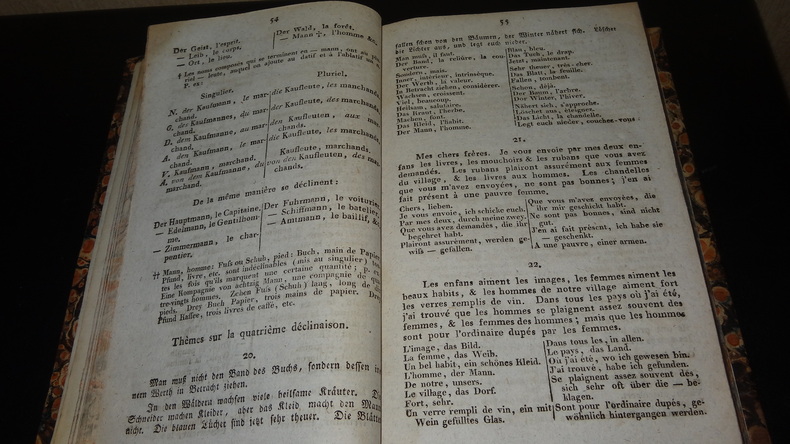 54
Der Geist, l'esprit.
— Leib, le corps.
— Ort, le lieu.
Der Wald, la forêt.
— Mann †, l'homme &c.
† Les noms composés qui se terminent en — mann, ont au plu-
riel — leute, auquel on ajoute au datif et à l'ablatif
P. ex:
Singulier.
Pluriel.
N. der Kaufmann, le mar-
chand.
G. des Kaufmannes, du mar-
chand.
D. dem Kaufmanne, au mar-
chand.
A. den Kaufmann, le mar-
chand.
V. Kaufmann, marchand.
A. von dem Kaufmanne, du
marchand.
die Kaufleute, les marchands.
der Kaufleute, des marchands.
den Kaufleuten, aux mar-
chands.
die Kaufleute, les marchands.
Kaufleute, marchands.
von den Kaufleuten, des mar-
chands.
De la même manière se déclinent:
Der Hauptmann, le Capitaine.
— Edelmann, le Gentilhom-
me.
— Zimmermann, le char-
pentier.
Der Fuhrmann, le voiturier.
— Schiffmann, le batelier.
— Amtmann, le baillif, &c.
†† Mann, homme; Fuſs ou Schuh, pied; Buch, main de Papier,
Pfund, livre, etc. sont indéclinables (mis au singulier) tou-
tes les fois qu'ils marquent une certaine quantité; p. ex.
Eine Kompagnie von achtzig Mann, une compagnie de qua-
tre-vingts hommes. Zehen Fuſs (Schuh) lang, long de dix
pieds. Drey Buch Papier, trois mains de papier. Drey
Pfund Kaffee, trois livres de caffé, etc.
Thèmes sur la quatrième déclinaison.
20.
Man muß nicht den Band des Buchs, sondern dessen in-
nern Werth in Betracht ziehen.
In den Wäldern wachsen viele heilsame Kräuter. Die
Schneider machen Kleider, aber das Kleid macht den Mann
nicht. Die blauen Tücher sind jetzt sehr theuer. Die Blätter
55
fallen schon von den Bäumen, der Winter nähert sich. Löschet
die Lichter aus, und legt euch nieder.
Man muſs, il faut.
Der Band, la reliûre, la cou-
verture.
Sondern, mais.
Inner, intérieur, intrinsèque.
Der Werth, la valeur.
In Betracht ziehen, considérer.
Wachsen, croissent.
Viel, beaucoup.
Heilsam, salutaire.
Das Kraut, l'herbe.
Machen, font.
Das Kleid, l'habit.
Der Mann, l'homme.
Blau, bleu.
Das Tuch, le drap.
Jetzt, maintenant.
Sehr theuer, très-cher.
Das Blatt, la feuille.
Fallen, tombent.
Schon, déjà.
Der Baum, l'arbre.
Der Winter, l'hiver.
Nähert sich, s'approche.
Löschet aus, éteignez.
Das Licht, la chandelle.
Legt euch nieder, couchez-vous.
21.
Mes chers frères. Je vous envoie par mes deux en-
fans les livres, les mouchoirs & les rubans que vous avez
demandés. Les rubans plairont assurément aux femmes
du village, & les livres aux hommes. Les chandelles
que vous m'avez envoyées, ne sont pas bonnes; j'en ai
fait présent à une pauvre femme.
Chers, lieben.
Je vous envoie, ich schicke euch.
Par mes deux, durch meine zwey.
Que vous avez demandés, die ihr
begehrt habt.
Plairont assurément, werden ge-
wiſs — gefallen.
Que vous m'avez envoyées, die
ihr mir geschickt habt.
Ne sont pas bonnes, sind nicht
gut.
J'en ai fait présent, ich habe sie
— geschenkt.
A une pauvre, einer armen.
22.
Les enfans aiment les images, les femmes aiment les
beaux habits, & les hommes de notre village aiment fort
les verres remplis de vin. Dans tous les pays où j'ai été,
j'ai trouvé que les hommes se plaignent assez souvent des
femmes, & les femmes des hommes; mais que les hommes
sont pour l'ordinaire dupés par les femmes.
L'image, das Bild.
La femme, das Weib.
Un bel habit, ein schönes Kleid.
L'homme, der Mann.
De notre, unsers.
Le village, das Dorf.
Fort, sehr.
Un verre rempli de vin, ein mit
Wein gefülltes Glas.
Dans tous les, in allen.
Le pays, das Land.
Où j'ai été, wo ich gewesen bin.
J'ai trouvé, habe ich gefunden.
Se plaignent assez souvent des,
sich sehr oft über die — be-
klagen.
Sont pour l'ordinaire dupés, ge-
wöhnlich hintergangen werden.